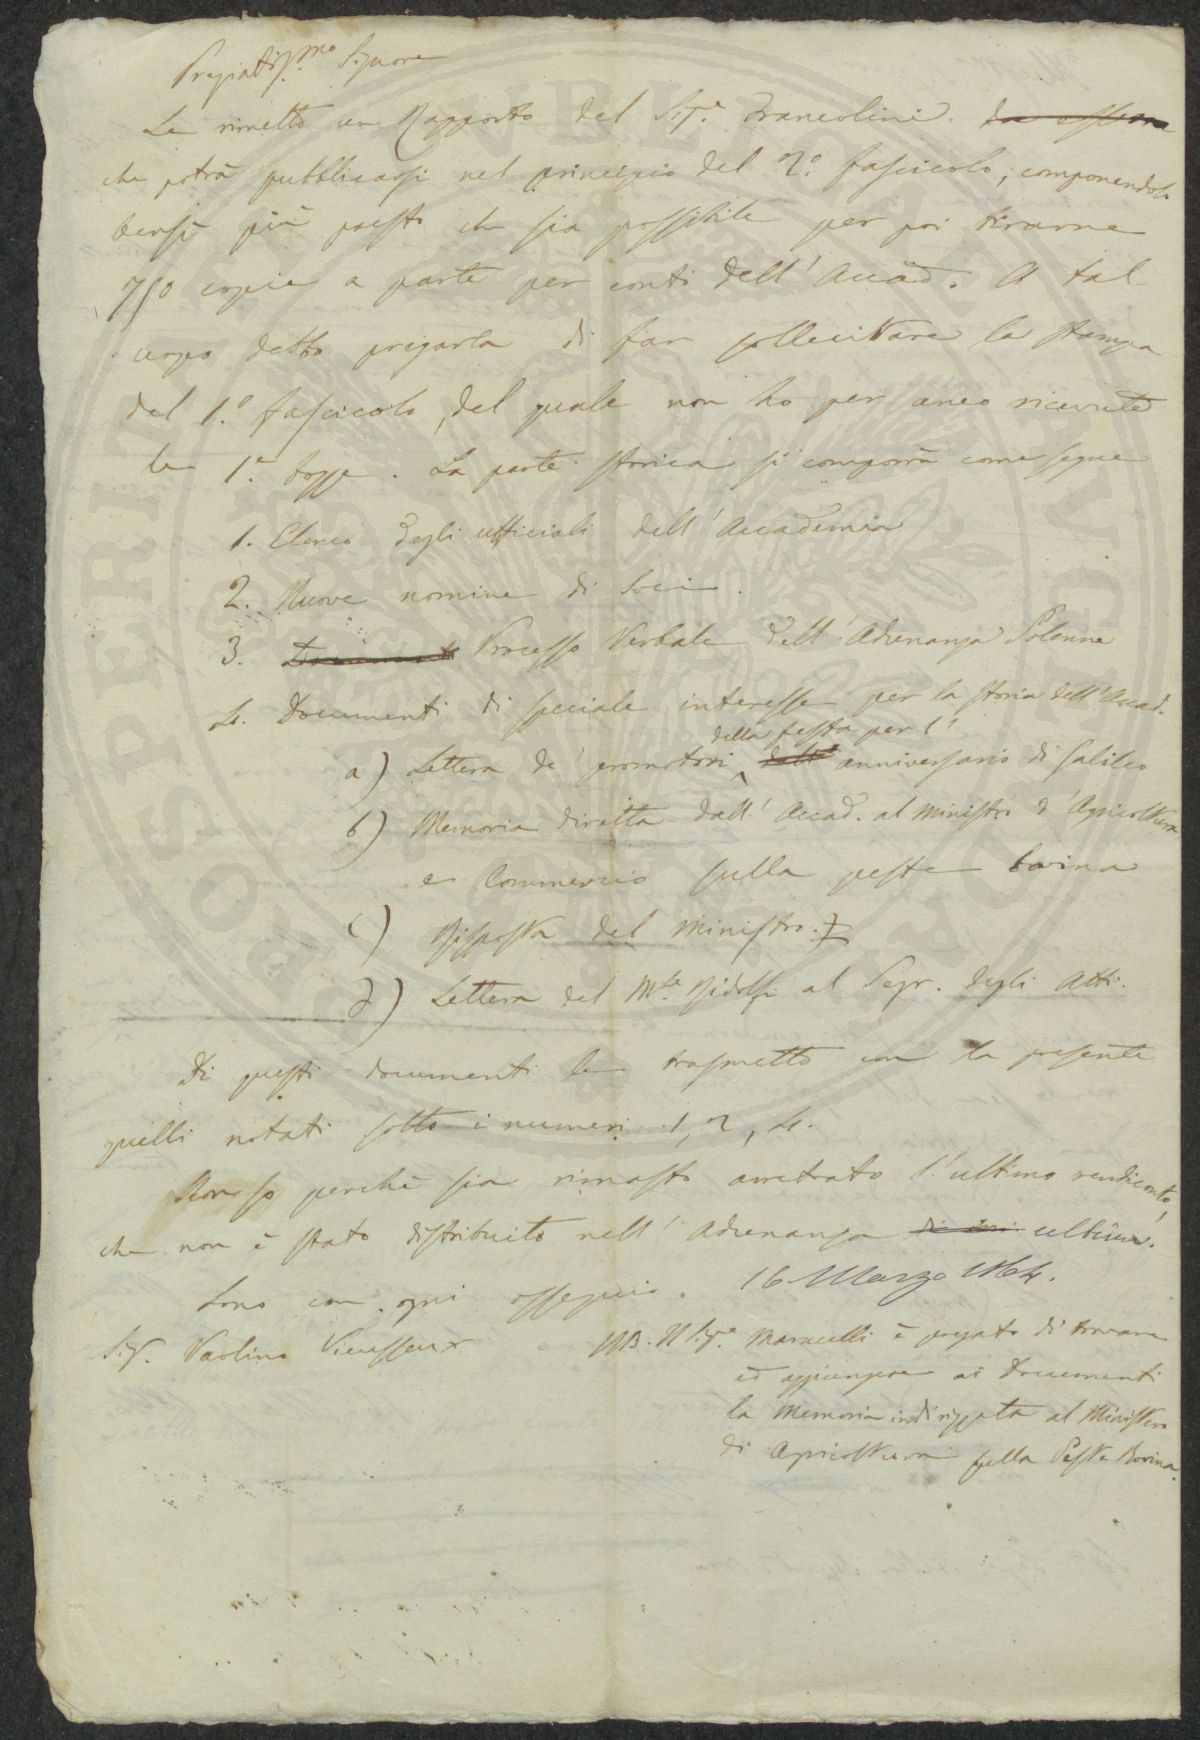 Pregiatiss.mo Signore
Le rimetto un Rapporto del Sig.e Francolini
che potrà pubblicarsi nel principio del 2.o fascicolo, componendolo
bensì più presto che sia possibile per poi tirarne
750 copie a parte per conti dell'Accad. A tal
uopo debbo pregarla di far sollecitare la stampa
del 1.o fascicolo, del quale non ho per anco ricevute
le 1.e bozze. La parte storica si comporrà come segue
1. Elenco degli ufficiali dell'Accademia
2. Nuove nomine di Soci.
3. Documenti Processo Verbale dell'Adunanza Solenne
4. Documenti di speciale interesse per la storia dell'Accad.
della festa per l'
a) Lettera de' promotori dell' anniversario di Galileo
b) Memoria diretta dall'Accad. al Ministro d'Agricoltura
e Commercio sulla peste bovina
c) Risposta del Ministro.
d) Lettera del M.se Ridolfi al Segr. degli Atti.
Di questi documenti le trasmetto con la presente
quelli notati sotto i numeri 1, 2, 4.
Non so perchè sia rimasto arretrato l'ultimo rendiconto,
che non è stato distribuito nell'Adunanza di ieri ultima.
Sono con ogni ossequio. 16 Marzo 1864.
Sig. Paolino Vieusseux
NB. Il Sig.e Marucelli è pregato di trovare
ed aggiungere ai Documenti
la Memoria indirizzata al Ministero
di Agricoltura sulla Peste Bovina.
PROSPERITATI PUBLICAE AUGENDAE